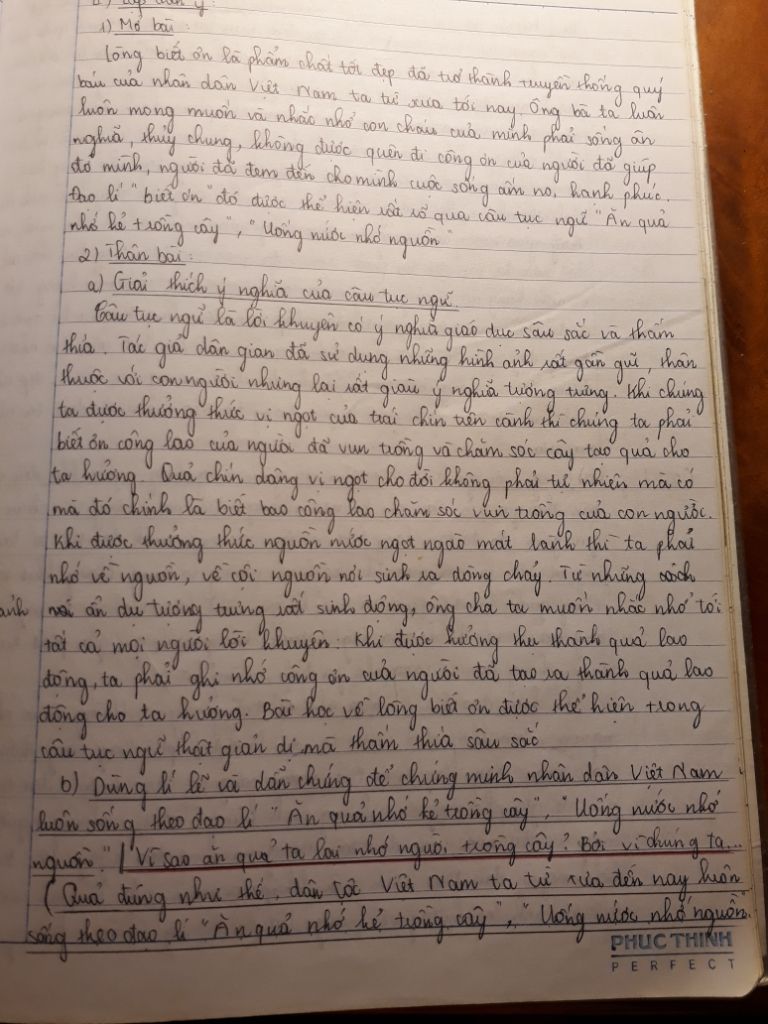 1) Mở bài:
Lòng biết ơn là phẩm chất tốt đẹp đã trở thành truyền thống quý
báu của nhân dân Việt Nam ta từ xưa tới nay. Ông bà ta luôn
luôn mong muốn và nhắc nhở con cháu của mình phải sống ân
nghĩa, thủy chung, không được quên đi công ơn của người đã giúp
đỡ mình, người đã đem đến cho mình cuộc sống ấm no, hạnh phúc.
Đạo lí "biết ơn" đó được thể hiện rất rõ qua câu tục ngữ "Ăn quả
nhớ kẻ trồng cây", "Uống nước nhớ nguồn"
2) Thân bài:
a) Giải thích ý nghĩa của câu tục ngữ.
Câu tục ngữ là lời khuyên có ý nghĩa giáo dục sâu sắc và thấm
thía. Tác giả dân gian đã sử dụng những hình ảnh rất gần gũi, thân
thuộc với con người nhưng lại rất giàu ý nghĩa tượng trưng. Khi chúng
ta được thưởng thức vị ngọt của trái chín trên cành thì chúng ta phải
biết ơn công lao của người đã vun trồng và chăm sóc cây tạo quả cho
ta hưởng. Quả chín dâng vị ngọt cho đời không phải tự nhiên mà có
mà đó chính là biết bao công lao chăm sóc vun trồng của con người.
Khi được thưởng thức nguồn nước ngọt ngào mát lành thì ta phải
nhớ về nguồn, về cội nguồn nơi sinh ra dòng chảy. Từ những cách
ảnh ẩn dụ tượng trưng rất sinh động, ông cha ta muốn nhắc nhở tới
tất cả mọi người lời khuyên: Khi được hưởng thụ thành quả lao
động, ta phải ghi nhớ công ơn của người đã tạo ra thành quả lao
động cho ta hưởng. Bài học về lòng biết ơn được thể hiện trong
câu tục ngữ thật giản dị mà thấm thía sâu sắc
b) Dùng lí lẽ và dẫn chứng để chứng minh nhân dân Việt Nam
luôn sống theo đạo lí "Ăn quả nhớ kẻ trồng cây", "Uống nước nhớ
nguồn." / Vì sao ăn quả ta lại nhớ người trồng cây? Bởi vì chúng ta...
( Quả đúng như thế, dân tộc Việt Nam ta từ xưa đến nay luôn
sống theo đạo lí "Ăn quả nhớ kẻ trồng cây", "Uống nước nhớ nguồn.
PHUC THINH
PERFECT